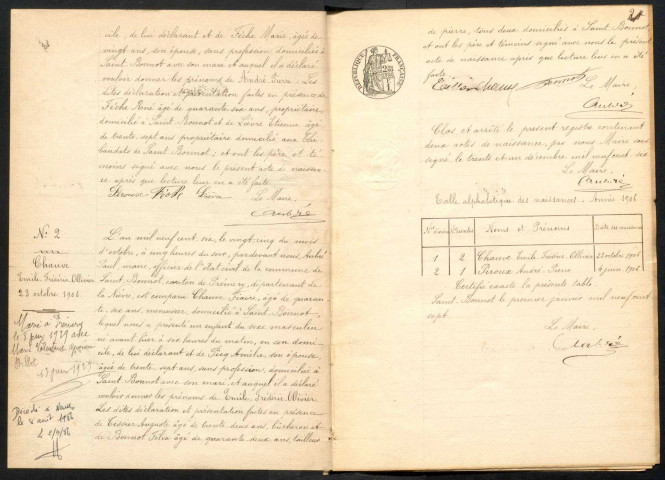 cile, de lui déclarant et de Fèche Marie, âgée de
vingt ans, son épouse, sans profession, domiciliée à
Saint Bonnot avec son mari et auquel il a déclaré
vouloir donner les prénoms de André Pierre. Les
dites déclaration et présentation faites en présence de
Fèche René âgé de quarante six ans, propriétaire,
domicilié à Saint Bonnot et de Lièvre Etienne âgé
de trente sept ans propriétaire domicilié aux
de Saint Bonnot; et ont les père et té
moins signé avec nous le présent acte de naissan
ce après que lecture leur en a été faite.
Le Maire,
N° 2
Chauve
Emile Frédéric Ollivier
23 octobre 1906
Marié à
le 8 juin 1929 avec
Marie Valentine
13 juin 1929
Décédé à
le août 1986
L'an mil neuf cent six, le vingt cinq du mois
d'octobre, à onze heures du soir, pardevant nous André
Paul, maire, officier de l'état civil de la commune de
Saint Bonnot, canton de Prémery, département de
la Nièvre, est comparu Chauve Pierre, âgé de quaran
te six ans, menuisier, domicilié à Saint Bonnot,
lequel nous a présenté un enfant du sexe masculin
né avant hier à six heures du matin, en son domi-
cile, de lui déclarant et de Picq Amélie, son épouse
âgée de trente sept ans, sans profession, domiciliée à
Saint Bonnot avec son mari, et auquel il a déclaré
vouloir donner les prénoms de Emile Frédéric Ollivier.
Les dites déclaration et présentation faites en présence
de Tessier Auguste âgé de trente deux ans, bûcheron et
de Bonnot Félix âgé de quarante deux ans, tailleur
2
RÉPUBLIQUE FRANÇAISE
de pierre, tous deux domiciliés à Saint Bonnot
et ont les père et témoins signé avec nous le présent
acte de naissance après que lecture leur en a été
faite.
Chauve Bonnot Le Maire,
Clos et arrêté le present registre contenant
deux actes de naissance, par nous Maire sous
signé, le trente et un décembre mil neuf cent six
Le Maire,
Table alphabétique des naissances. Année 1906
N° d'ordre Noms et Prénoms
1 2 Chauve Emile Frédéric Ollivier 23 octobre 1906
2 1 Peroux André Pierre 4 juin 1906
Certifié exacte la présente table
Saint Bonnot le premier janvier mil neuf cent
sept.
Le Maire,